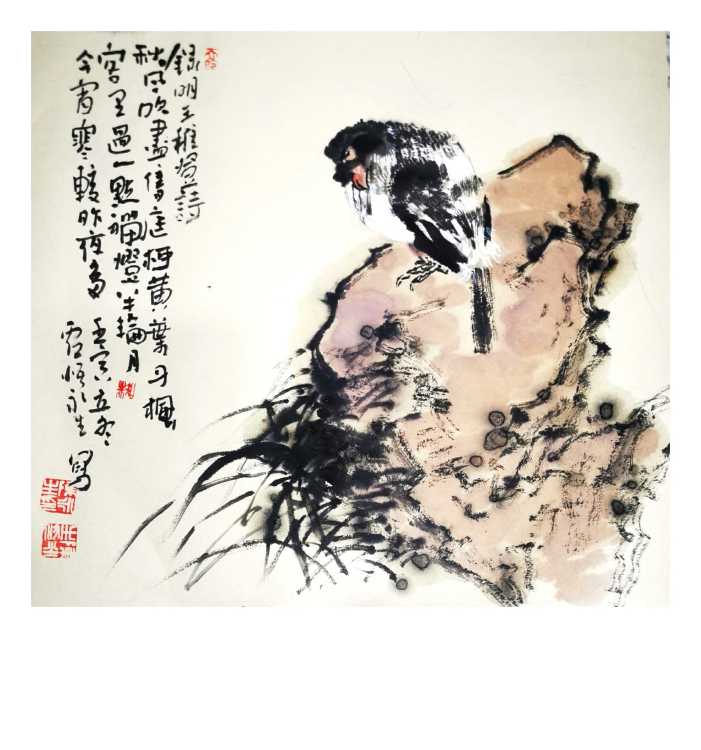 錄明王稚登詩
秋风吹盡舊庭柯黃葉丹楓
客里過一點禪燈半輪月
今宵寒較昨夜多 壬寅立冬
永生寫